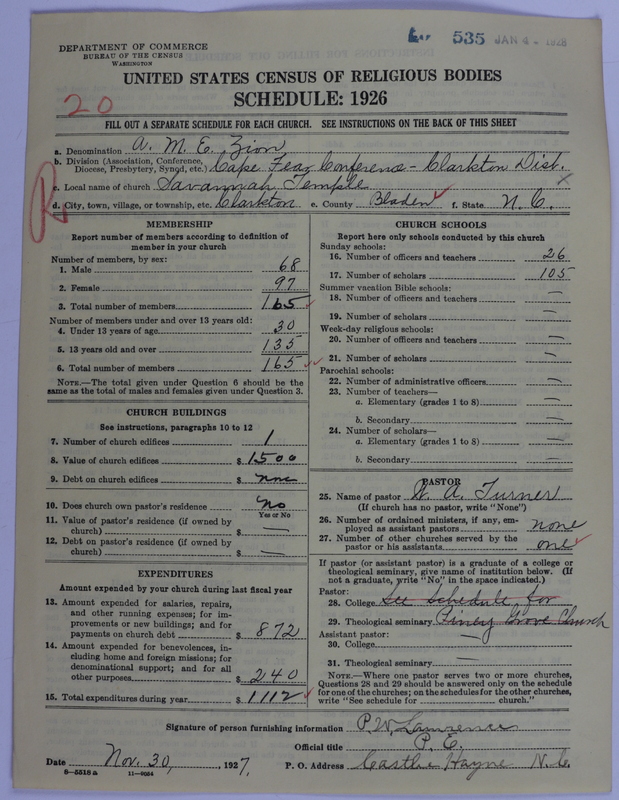 DEPARTMENT OF COMMERCE
BUREAU OF THE CENSUS
WASHINGTON
535 JAN 4 - 1928
UNITED STATES CENSUS OF RELIGIOUS BODIES
SCHEDULE: 1926
20
FILL OUT A SEPARATE SCHEDULE FOR EACH CHURCH. SEE INSTRUCTIONS ON THE BACK OF THIS SHEET
a. Denomination A. M. E. Zion
b. Division (Association, Conference, Diocese, Presbytery, Synod, etc.) Cape Fear Conference - Clarkton Dist.
c. Local name of church Savannah Temple
d. City, town, village, or township, etc. Clarkton e. County Bladen f. State N. C.
MEMBERSHIP
Report number of members according to definition of member in your church
Number of members, by sex:
1. Male 68
2. Female 97
3. Total number of members 165
Number of members under and over 13 years old:
4. Under 13 years of age 30
5. 13 years old and over 135
6. Total number of members 165
NOTE.—The total given under Question 6 should be the same as the total of males and females given under Question 3.
CHURCH BUILDINGS
See instructions, paragraphs 10 to 12
7. Number of church edifices 1
8. Value of church edifices $ 1500
9. Debt on church edifices $ none
10. Does church own pastor's residence No
Yes or No
11. Value of pastor's residence (if owned by church) $ —
12. Debt on pastor's residence (if owned by church) $ —
EXPENDITURES
Amount expended by your church during last fiscal year
13. Amount expended for salaries, repairs, and other running expenses; for improvements or new buildings; and for payments on church debt $ 872
14. Amount expended for benevolences, including home and foreign missions; for denominational support; and for all other purposes $ 240
15. Total expenditures during year $ 1112
CHURCH SCHOOLS
Report here only schools conducted by this church
Sunday schools:
16. Number of officers and teachers 26
17. Number of scholars 105
Summer vacation Bible schools:
18. Number of officers and teachers —
19. Number of scholars —
Week-day religious schools:
20. Number of officers and teachers —
21. Number of scholars —
Parochial schools:
22. Number of administrative officers —
23. Number of teachers—
a. Elementary (grades 1 to 8) —
b. Secondary —
24. Number of scholars—
a. Elementary (grades 1 to 8) —
b. Secondary —
PASTOR
25. Name of pastor W. A. Turner
(If church has no pastor, write "None")
26. Number of ordained ministers, if any, employed as assistant pastors none
27. Number of other churches served by the pastor or his assistants one
If pastor (or assistant pastor) is a graduate of a college or theological seminary, give name of institution below. (If not a graduate, write "No" in the space indicated.)
Pastor:
28. College See Schedule for
29. Theological seminary Piney Grove Church
Assistant pastor:
30. College —
31. Theological seminary —
NOTE.—Where one pastor serves two or more churches, Questions 28 and 29 should be answered only on the schedule for one of the churches; on the schedules for the other churches, write "See schedule for church."
Signature of person furnishing information P. W. Lawrence
Official title P. E.
Date Nov. 30, 1927. P. O. Address Castle Hayne N. C.
8-5318 a 11-9054